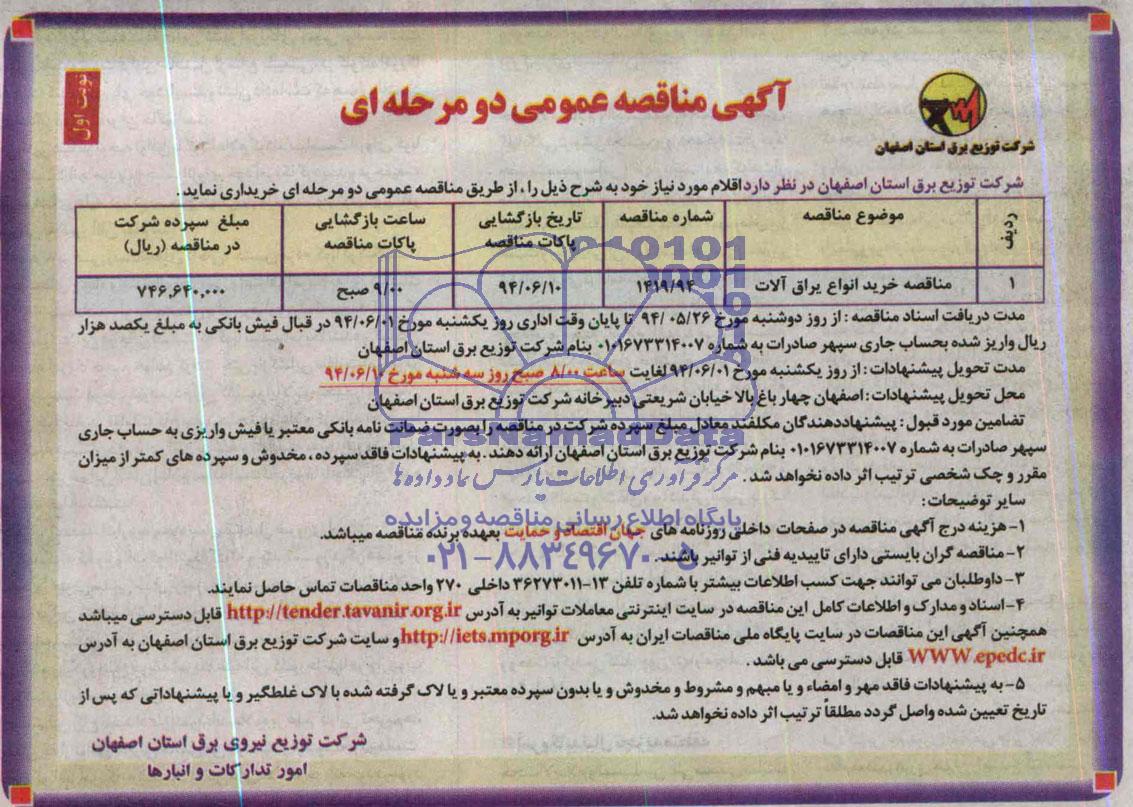 نوبت اول
آگهی مناقصه عمومی دو مرحله ای
شرکت توزیع برق استان اصفهان
شرکت توزیع برق استان اصفهان در نظر دارد اقلام مورد نیاز خود به شرح ذیل را ، از طریق مناقصه عمومی دو مرحله ای خریداری نماید .
ردیف موضوع مناقصه شماره مناقصه تاریخ بازگشایی پاکات مناقصه ساعت بازگشایی پاکات مناقصه مبلغ سپرده شرکت در مناقصه (ریال)
۱ مناقصه خرید انواع یراق آلات ۱۴۱۹/۹۴ ۹۴/۰۶/۱۰ ۹/۰۰ صبح ۷۴۶,۶۴۰,۰۰۰
مدت دریافت اسناد مناقصه : از روز دوشنبه مورخ ۹۴/۰۵/۲۶ تا پایان وقت اداری روز یکشنبه مورخ ۹۴/۰۶/۰۱ در قبال فیش بانکی به مبلغ یکصد هزار
ریال واریز شده بحساب جاری سپهر صادرات به شماره ۰۱۰۱۶۷۳۳۱۴۰۰۷ بنام شرکت توزیع برق استان اصفهان
مدت تحویل پیشنهادات : از روز یکشنبه مورخ ۹۴/۰۶/۰۱ لغایت ساعت ۸/۰۰ صبح روز سه شنبه مورخ ۹۴/۰۶/۱۰
محل تحویل پیشنهادات : اصفهان چهار باغ بالا خیابان شریعتی دبیرخانه شرکت توزیع برق استان اصفهان
تضامین مورد قبول : پیشنهاددهندگان مکلفند معادل مبلغ سپرده شرکت در مناقصه را بصورت ضمانت نامه بانکی معتبر یا فیش واریزی به حساب جاری
سپهر صادرات به شماره ۰۱۰۱۶۷۳۳۱۴۰۰۷ بنام شرکت توزیع برق استان اصفهان ارائه دهند . به پیشنهادات فاقد سپرده ، مخدوش و سپرده های کمتر از میزان
مقرر و چک شخصی ترتیب اثر داده نخواهد شد .
سایر توضیحات :
۱- هزینه درج آگهی مناقصه در صفحات داخلی روزنامه های جهان اقتصاد و حمایت بعهده برنده مناقصه میباشد.
۲- مناقصه گران بایستی دارای تاییدیه فنی از توانیر باشند.
۳- داوطلبان می توانند جهت کسب اطلاعات بیشتر با شماره تلفن ۱۳-۳۶۲۷۳۰۱۱ داخلی ۲۷۰ واحد مناقصات تماس حاصل نمایند.
۴- اسناد و مدارک و اطلاعات کامل این مناقصه در سایت اینترنتی معاملات توانیر به آدرس http://tender.tavanir.org.ir قابل دسترسی میباشد
همچنین آگهی این مناقصات در سایت پایگاه ملی مناقصات ایران به آدرس http://iets.mporg.ir و سایت شرکت توزیع برق استان اصفهان به آدرس
WWW.epedc.ir قابل دسترسی می باشد .
۵- به پیشنهادات فاقد مهر و امضاء و یا مبهم و مشروط و مخدوش و یا بدون سپرده معتبر و یا لاک گرفته شده با لاک غلطگیر و یا پیشنهاداتی که پس از
تاریخ تعیین شده واصل گردد مطلقاً ترتیب اثر داده نخواهد شد.
شرکت توزیع نیروی برق استان اصفهان
امور تدارکات و انبارها
ParsNamadData
مرکز فرآوری اطلاعات پارس نماد داده ها
پایگاه اطلاع رسانی مناقصه و مزایده
۰۲۱-۸۸۳۴۹۶۷۰-۵